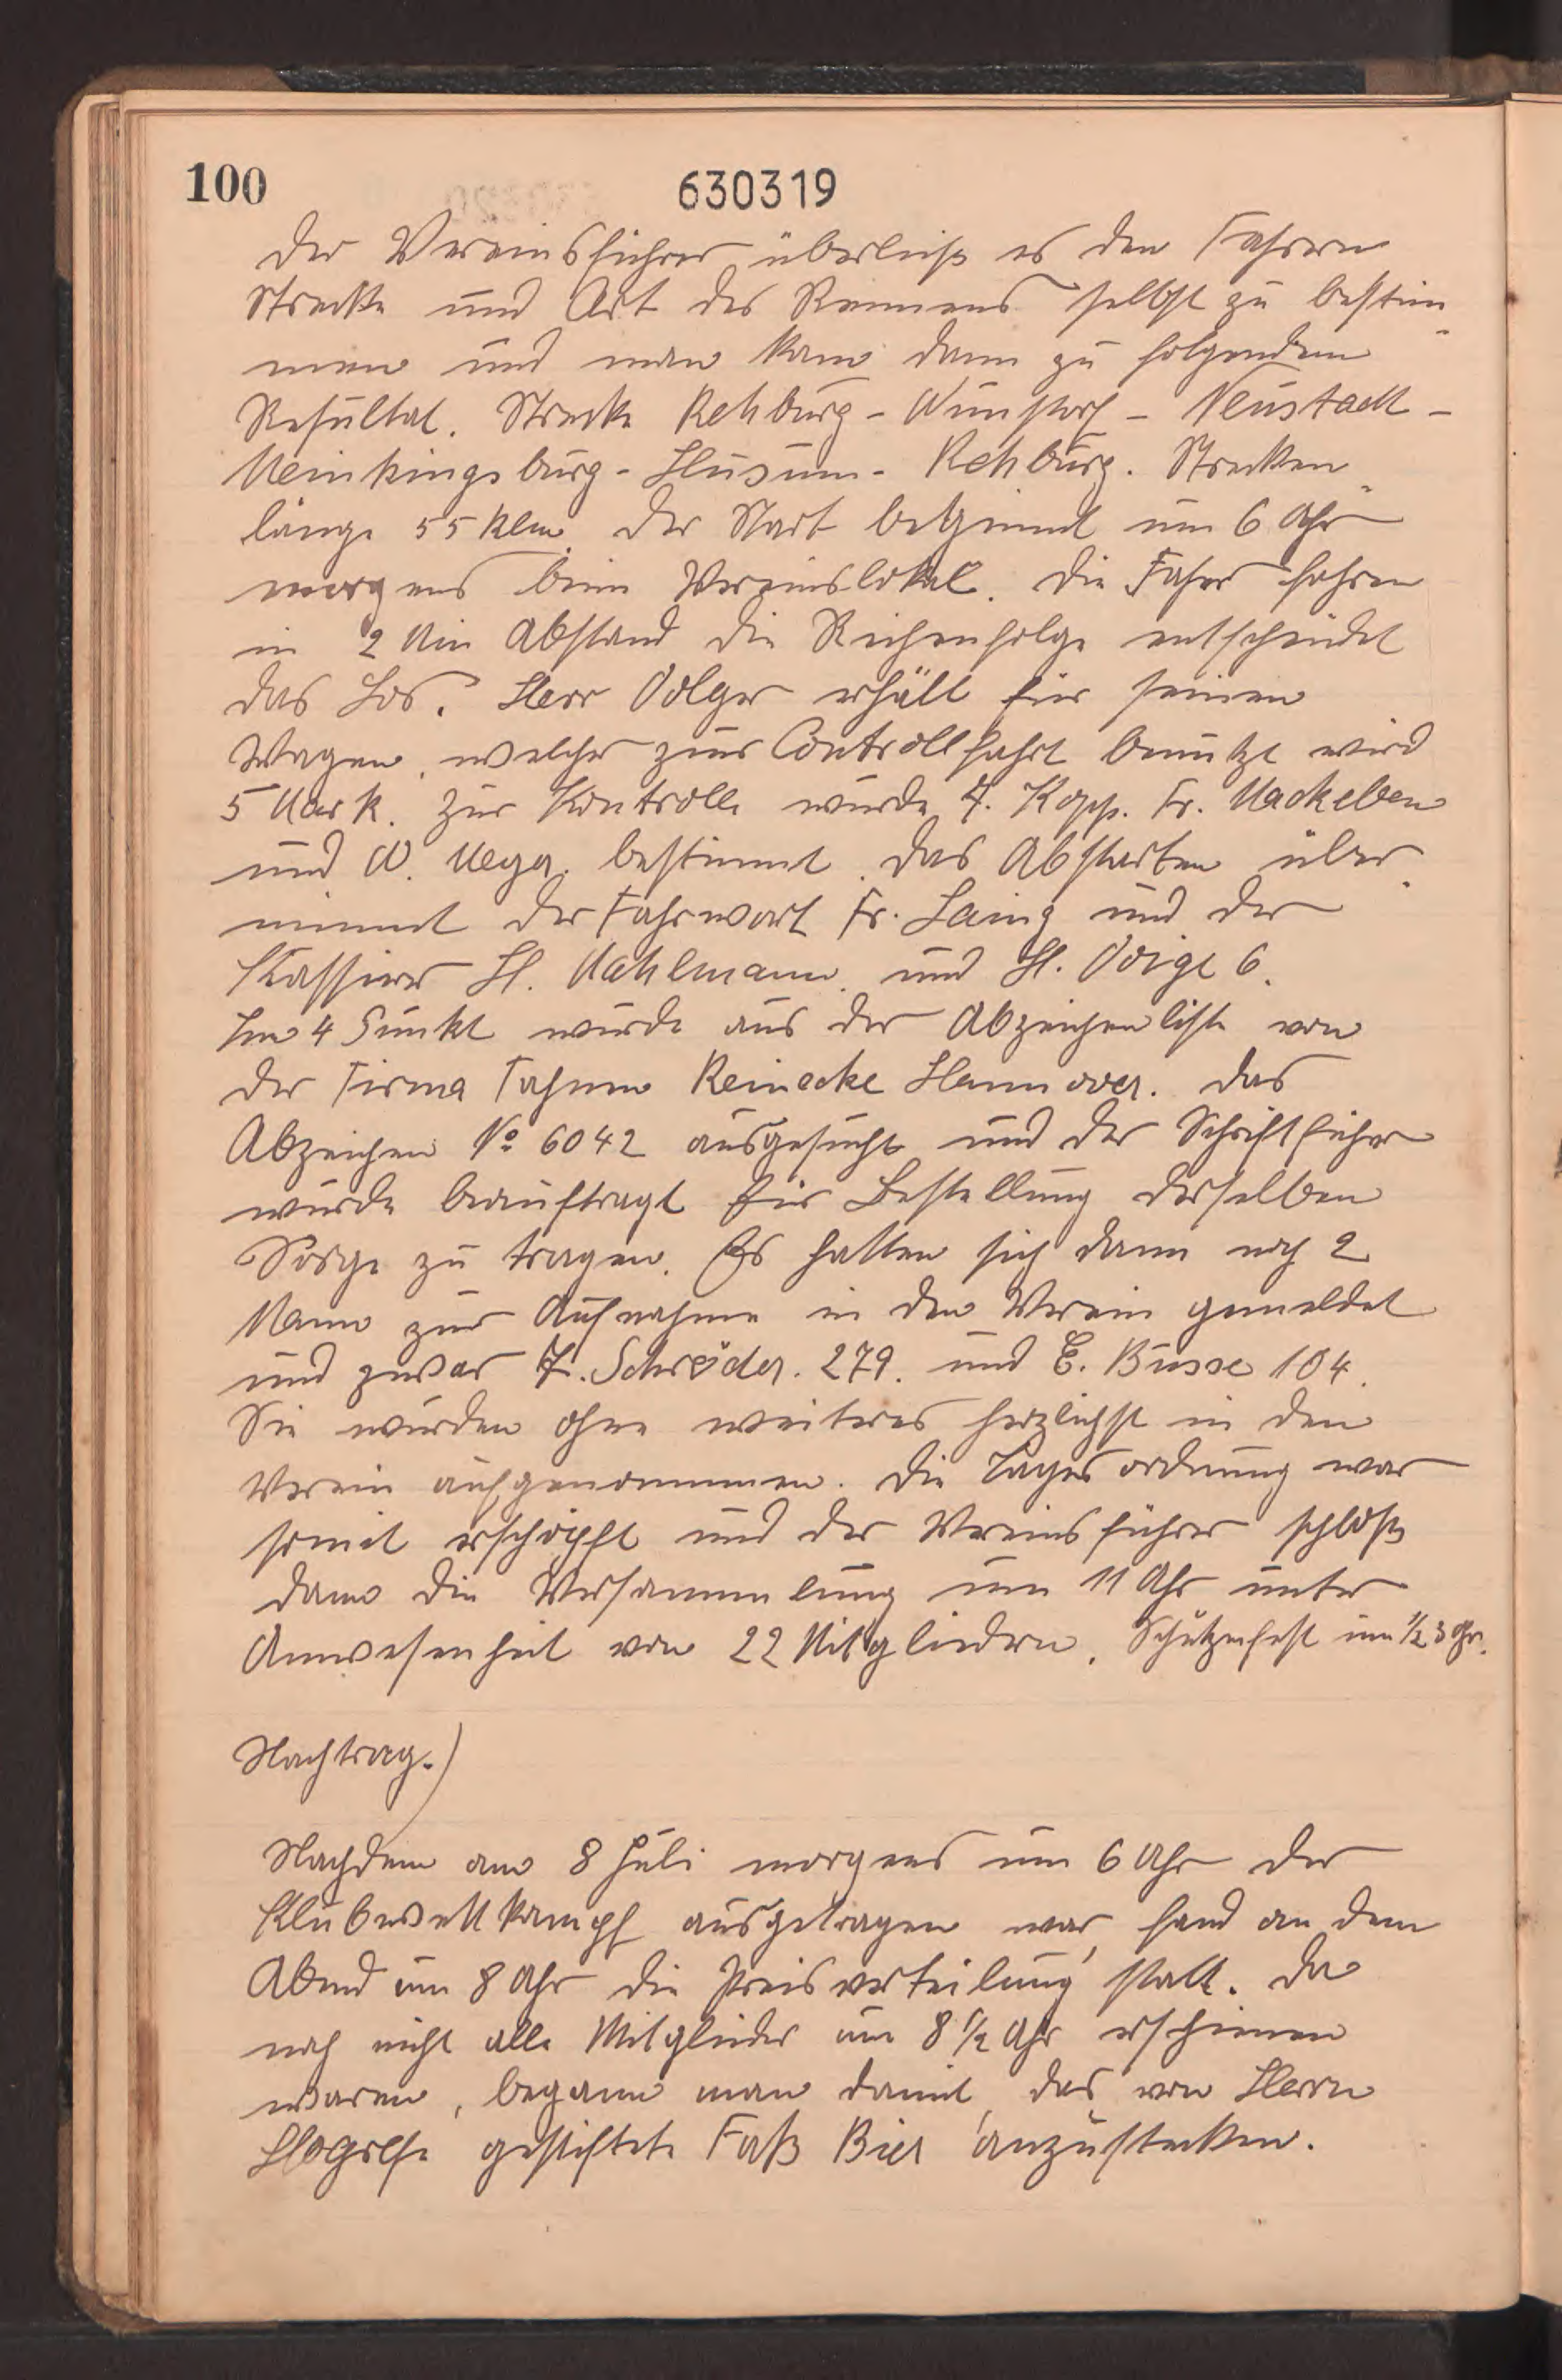 100
630319
Der Vereinsführer überließ es den Fahrern
Strecke und Art des Rennens selbst zu bestim-
men und man kam dann zu folgendem
Resultat. Strecke Rehburg - Wunstorf - Neustadt -
Meinkingsburg - Husum - Rehburg. Strecken-
länge 55 Klm. Der Start beginnt um 6 Uhr
morgens beim Vereinslokal. Die Fahrer fahren
in 2 Min Abstand die Reihenfolge entscheidet
das Los. Herr Volger erhält für seinen
Wagen, welcher zur Controllfahrt benutzt wird
5 Mark. Zur Kontrolle wurde F. Kopp. Fr. Mackeben
und W. Meyer. bestimmt. Das Abstarten über-
nimmt der Fahrwart Fr. Laing und der
Kassierer H. Mahlmann. und H. Voigt 6.
Im 4 Punkt wurde aus der Abzeichenliste von
der Firma Fahnen Reinecke Hannover. das
Abzeichen No 6042 ausgesucht und der Schriftführer
wurde beauftragt für Bestellung derselben
Sorge zu tragen. Es hatten sich dann noch 2
Mann zur Aufnahme in den Verein gemeldet
und zwar F. Schröder. 279. und E. Busse 104.
Sie wurden ohne weiteres herzlichst in den
Verein aufgenommen. Die Tagesordnung war
somit erschöpft und der Vereinsführer schloß
dann die Versammlung um 11 Uhr unter
Anwesenheit von 22 Mitgliedern. Schützenfest um 1/2 3 Uhr.
Nachtrag.)
Nachdem am 8 Juli morgens um 6 Uhr der
Klubwettkampf ausgetragen war, fand an dem
Abend um 8 Uhr die Preisverteilung statt. Da
noch nicht alle Mitglieder um 8 1/2 Uhr erschienen
waren, begann man damit, das von Herrn
Hogrefe gestiftete Faß Bier anzustecken.